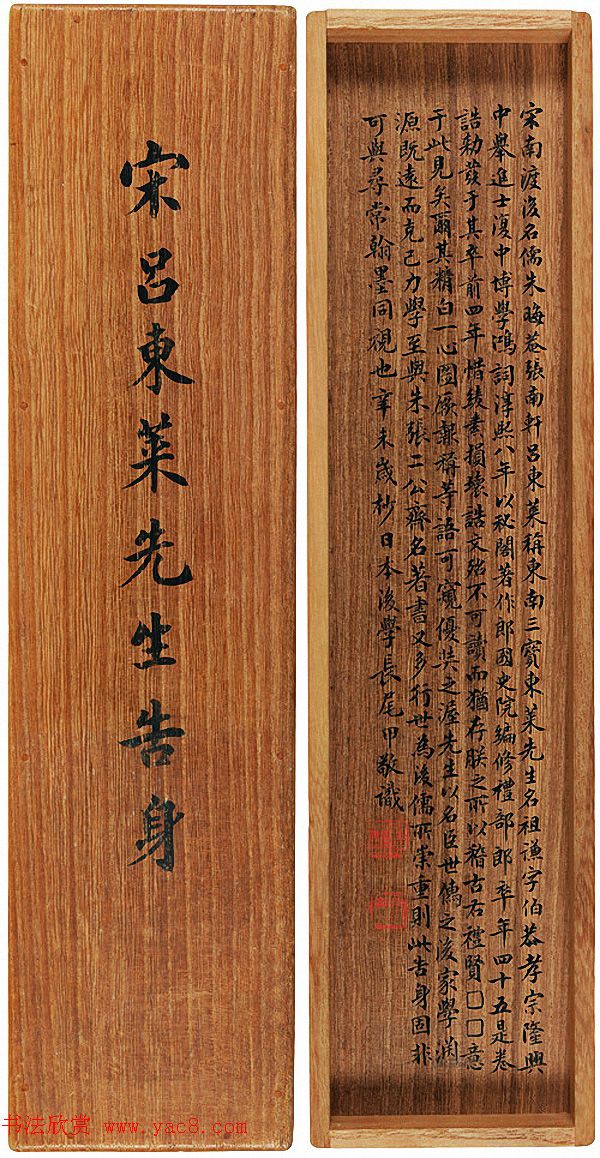 宋呂東萊先生告身
宋南渡後名儒朱晦菴張南軒呂東萊稱東南三寶東萊先生名祖謙字伯恭孝宗隆興
中舉進士復中博學鴻詞淳熙八年以秘閣著作郎國史院編修禮部郎卒年四十五是卷
誥勅發于其卒前四年惜綾素損壞誥文殆不可讀而猶存朕之所以稽古右禮賢□□意
于此見矣爾其精白一心圖厥報稱等語可窺優奬之渥先生以名臣世儒之後家學淵
源既遠而克己力學至與朱張二公齊名著書又多行世為後儒所崇重則此告身固非
可與尋常翰墨同視也辛未歲杪日本後學長尾甲敬識
书法欣赏 www.yac8.com